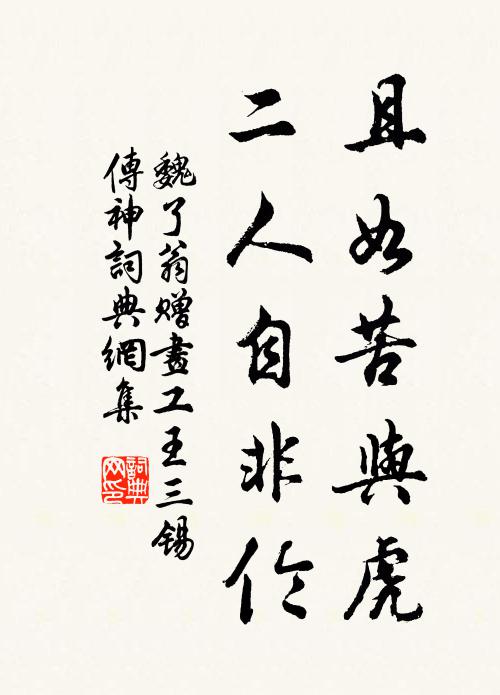 且如苦與虎
二人自非倫
魏了翁贈畫工王三錫
傳神詞典網集
詞典
网印